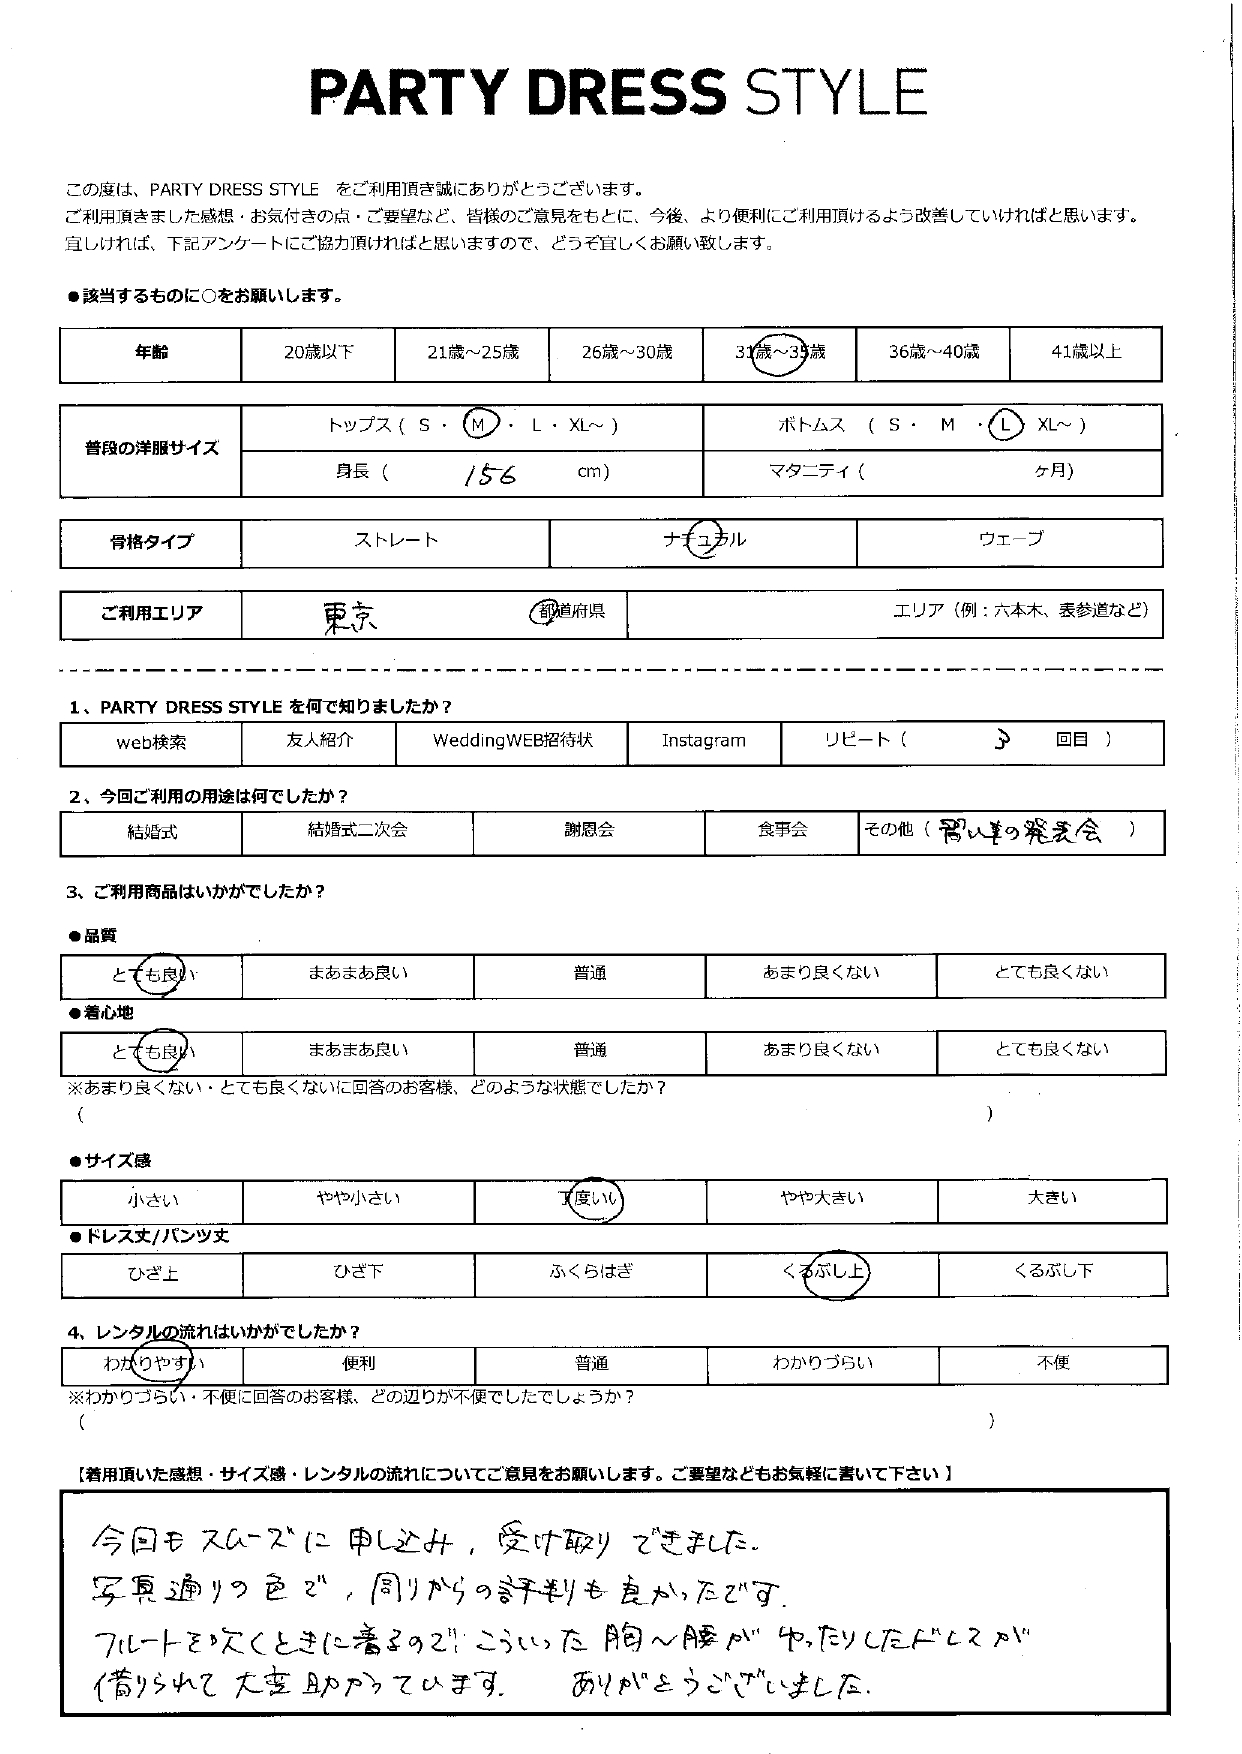 PARTY DRESS STYLE
この度は、PARTY DRESS STYLE をご利用頂き誠にありがとうございます。
ご利用頂きました感想・お気付きの点・ご要望など、皆様のご意見をもとに、今後、より便利にご利用頂けるよう改善していければと思います。
宜しければ、下記アンケートにご協力頂ければと思いますので、どうぞ宜しくお願い致します。
●該当するものに○をお願いします。
年齢 20歳以下 21歳～25歳 26歳～30歳 31歳～35歳 36歳～40歳 41歳以上
普段の洋服サイズ トップス ( S ・ M ・ L ・ XL～ ) ボトムス ( S ・ M ・ L XL～ )
身長 ( 156 cm) マタニティ ( ヶ月)
骨格タイプ ストレート ナチュラル ウェーブ
ご利用エリア 東京 都道府県 エリア（例：六本木、表参道など）
1、PARTY DRESS STYLE を何で知りましたか？
web検索 友人紹介 WeddingWEB招待状 Instagram リピート ( 3 回目 )
2、今回ご利用の用途は何でしたか？
結婚式 結婚式二次会 謝恩会 食事会 その他 ( 習い事の発表会 )
3、ご利用商品はいかがでしたか？
●品質
とても良い まあまあ良い 普通 あまり良くない とても良くない
●着心地
とても良い まあまあ良い 普通 あまり良くない とても良くない
※あまり良くない・とても良くないに回答のお客様、どのような状態でしたか？
( )
●サイズ感
小さい やや小さい 丁度いい やや大きい 大きい
●ドレス丈/パンツ丈
ひざ上 ひざ下 ふくらはぎ くるぶし上 くるぶし下
4、レンタルの流れはいかがでしたか？
わかりやすい 便利 普通 わかりづらい 不便
※わかりづらい・不便に回答のお客様、どの辺りが不便でしたでしょうか？
( )
【着用頂いた感想・サイズ感・レンタルの流れについてご意見をお願いします。ご要望などもお気軽に書いて下さい】
今回もスムーズに申し込み，受け取りできました．
写真通りの色で，周りからの評判も良かったです．
フルートを吹くときに着るので，こういった胸～腰がゆったりしたドレスが
借りられて大変助かっています． ありがとうございました．